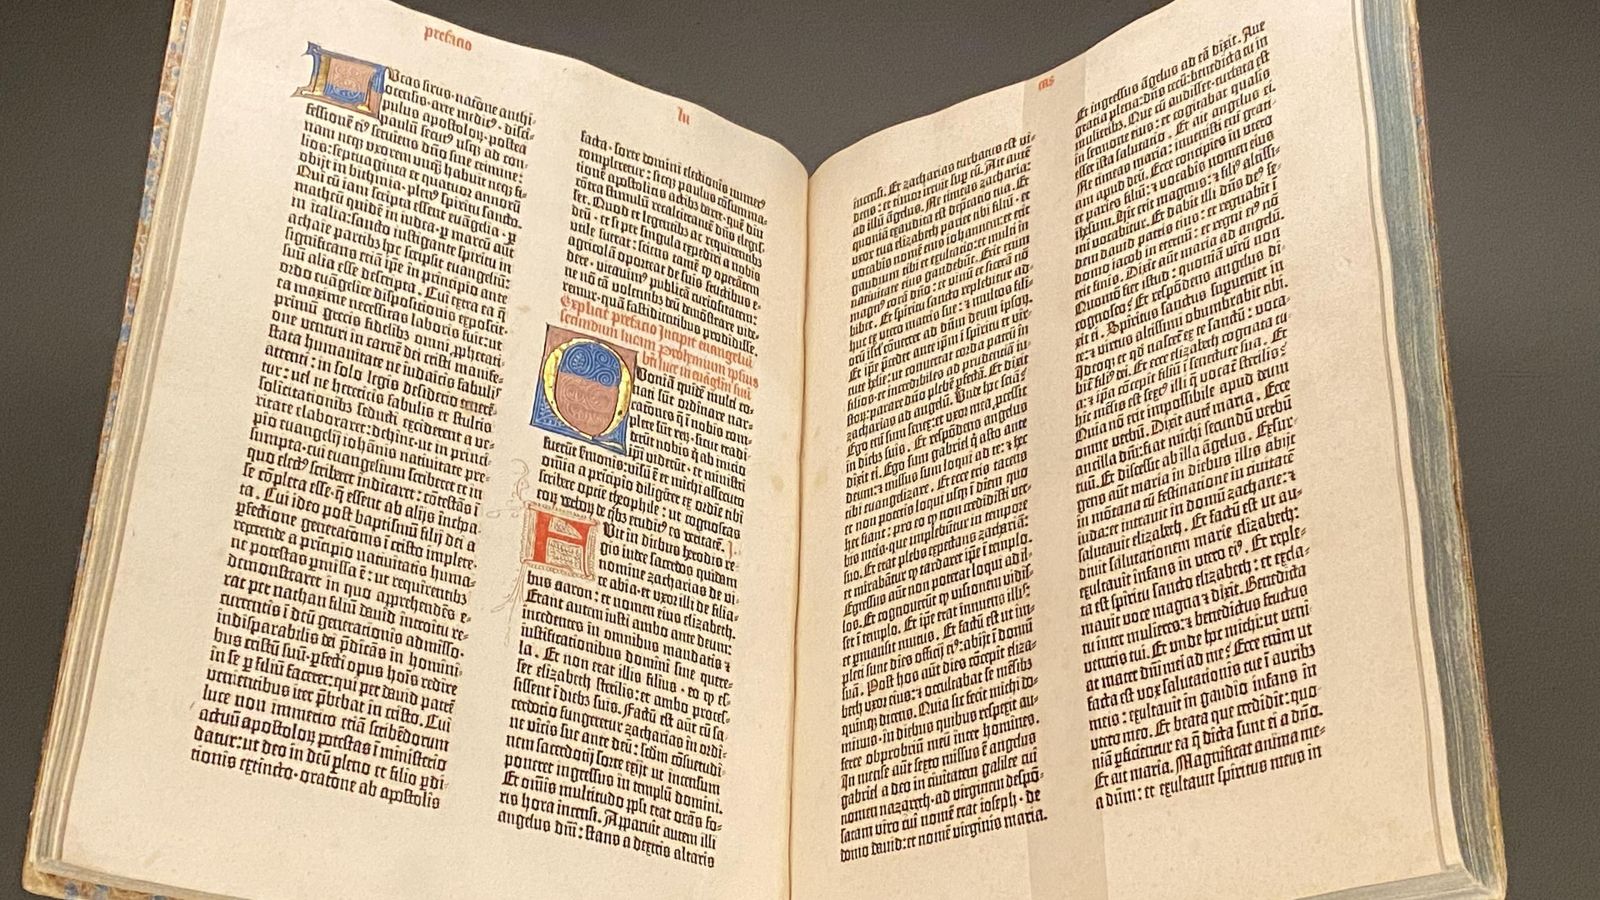 prefacio
Lucas sirus natōne anthi-
ocensis · arte medicꝰ · disci-
pulus apostoloꝝ · postea
paulū secutꝰ usqꝫ ad con-
fessionē eiꝰ serviens dño sine crimine:
nam neqꝫ uxorem unqȝ habuit neqꝫ fi-
lios: septuaginta et quatuor annorū
obijt in bithinia · plenꝰ spiritu sancto.
Qui cū iam scripta essent euāgelia · ꝑ
matheū quidē in iudea · ꝑ marcū aūt
in italia: sancto instigante spiritu in
achaie partibꝫ hoc scripsit euangeliū:
significans etiā ipē in principio ante
suū alia esse descripta. Cui extra ea q̄
ordo euāgelice dispositionis exposcit.
ea maxime necessitas laboris fuit: ut
primū grecis fidelibꝫ omni ꝓphetati-
one venturi in carnē dei cristi manife-
stata humanitate ne iudaicis fabulis
attenti: in solo legis desiderio tenerē-
tur: vel ne hereticis fabulis et stultis
sollicitationibꝫ seducti exciderent a ve-
ritate elaboraret: dehinc · ut in princi-
pio euangelij iohānis nativitate pre-
sumpta · cui euangelium scriberet et in
quo electꝰ scriberet indicaret: cōtestās ī
se cōpleta esse · q̄ essent ab alijs incho-
ata. Cui ideo post baptismū filij dei a
ꝑfectione generatōnis ī cristo implete ·
repetende a principio nativitatis huma-
ne potestas ꝑmissa ē: ut requirentibꝫ
demonstraret in quo apprehendēs e-
rat per nathan filiū david introitu re-
currentis ī deū generationis admisso ·
indisparabilis dei ꝑdicās in homini-
bus cristū suū · ꝑfecti opus hoīs redire
in se ꝑ filiū faceret: qui per david patrē
venientibus iter p̄bebat in cristo. Cui
luce non immerito etiā scribēdorum
actuū apostoloꝝ potestas ī ministerio
datur: ut deo in deū pleno et filio ꝓdi-
tionis extincto · oratone ab apostolis
lu
facta · sorte domini electionis numerꝰ
compleretur: sicqꝫ paulus cōsumma-
tionē apostolicis actibꝫ daret · quē diu
cōtra stimulū recalcitrantē dñs elegis-
set. Quod et legentibꝫ ac requirentibꝫ
deū · et si per singula expediri a nobis
utile fuerat: sciens tamē qꝫ operātem
agricolā oporteat de suis fructibus e-
dere · vitavimꝰ publicā curiositatem:
ne nō tā volentibꝫ deū demōstrare vide-
remur · quā fastidientibus prodidisse.
Explicit prefacio Incipit euangeliū
secundum lucam Prohemium ipsius
bti luce in euāgliū suū
Quoniā quidē multi co-
nati sūt ordinare nar-
rationes q̄ ī nobis com-
plete sūt reꝝ · sicut tradi-
derūt nobis q̄ ab inicio
ipi viderūt · et ministri
fuerūt sermonis: visū ē et michi assecuto
omnia a principio diligēter ex ordine tibi
scribere optie theophile: ut cognoscas
eoꝝ verboꝝ de qibꝫ eruditꝰ es veritatē. I.
Fuit in diebus herodis re-
gis iudee sacerdos quidam
nomine zacharias de vi-
ce abia · et uxor illi de filia-
bus aaron: et nomen eius elizabeth.
Erant autem iusti ambo ante deum:
incedentes in omnibus mandatis ⁊
iustificationibus domini sine quere-
la. Et non erat illis filius · eo qꝫ es-
set elizabeth sterilis: et ambo proces-
sissent ī diebꝫ suis. Factū est aūt cū sa-
cerdotio fungeretur zacharias in ordi-
ne vicis sue ante deū: scdm cōsuetudi-
nem sacerdotij sorte exijt ut incensum
poneret ingressus in templū domini.
Et omīs multitudo ppli erat orās fo-
ris hora incensi. Apparuit autem illi
angelus dñi: stans a dextris altaris
cas
incensi. Et zacharias turbatus est vi-
dens: et timor irruit sup eū. Ait autē
ad illū āgelus. Ne timeas zacharia:
quoniā exaudita est dep̄catio tua. Et
uxor tua elizabeth pariet tibi filiū · et
vocabis nomē eius iohannem: et erit
gaudium tibi et exultatio: et multi in
nativitate eius gaudebūt. Erit enim
magnꝰ corā dño: et vinū et siceră nō
bibet. Et spiritu sancto replebitur ad-
huc ex utero matris sue: et multos fili-
oꝝ isrl' cōvertet ad dñm deum ipsoꝝ.
Et ipē p̄cedet ante ipm̄ ī spiritu et vir-
tute helie: ut convertat corda patrū ī
filios · et incredibiles ad prudentiā iu-
stoꝝ: parare dño plebē ꝑfectā. Et dixit
zacharias ad angelū. Unde hoc sciā?
Ego em̄ sum senex: et uxor mea ꝓcessit
in diebꝫ suis. Et respōdens angelus
dixit ei. Ego sum gabriel q̄ asto ante
deum: ⁊ missus sum loqui ad te: ⁊ hec
tibi euangelizare. Et ecce eris tacens
et non poteris loqui usqꝫ ī diem quo
hec fiant: pro eo qꝫ non credidisti ver-
bis meis · que implebūtur in tempore
suo. Et erat plebs expectans zachariā:
et mirabātur qꝫ tardaret ipē ī templo.
Egressus aūt non poterat loqui ad il-
los. Et cognoverūt qꝫ visionem vidis-
set ī templo. Et ipē erat innuens illis:
et ꝑmansit mutus. Et factū est ut im-
pleti sunt dies officij eiꝰ: abijt ī domū
suā. Post hos aūt dies cōcepit eliza-
beth uxor eius: ⁊ occultabat se mēsibꝫ
quinqꝫ dicens. Quia sic fecit michi do-
minus · in diebus quibus respexit au-
ferre obprobriū meū inter homines.
In mense aūt sexto missus ē angelus
gabriel a deo in civitatem galilee cui
nomen nazareth · ad virginem despō-
satam viro cui nomē erat ioseph · de
domo david: et nomē virginis maria.
Et ingressus āgelus ad eā dixit. Ave
gratia plena: dñs tecū: benedicta tu in
mulieribꝫ. Que cū audisset · turbata est
in sermone eius: et cogitabat qualis
esset ista salutatio. Et ait angelus ei.
Ne timeas maria: invenisti em̄ grati-
am apud deū. Ecce concipies in utero
et paries filiū: ⁊ vocabis nomen eius
ihesum. Hic erit magnus: ⁊ filiꝰ altissi-
mi vocabitur. Et dabit illi dñs deꝰ se-
dem david patris eius: et regnabit ī
domo iacob in eternū: et regni eiꝰ non
erit finis. Dixit aūt maria ad angelū.
Quomō fiet istud: quoniā virū non
cognosco? Et respōdens angelus di-
xit ei. Spiritus sanctus superveniet in
te: ⁊ virtus altissimi obumbrabit tibi.
Ideoqꝫ et qd nascet͛ ex te sanctū: voca-
bit͛ filiꝰ dei. Et ecce elizabeth cognata tu-
a: ⁊ ipa cōcepit filiū ī senectute sua. Et
hic mēsis est sextꝰ illi q̄ vocat͛ sterilis:
Quia nō erit impossibile apud deum
omne verbū. Dixit aūt maria. Ecce
ancilla dñi: fiat michi secundū verbū
tuū. Et discessit ab illa āgelus. Exsur-
gens aūt maria in diebus illis abijt
in mōtana cū festinatione in civitatē
iuda: et intravit in domū zacharie: ⁊
salutavit elizabeth. Et factū est ut au-
divit salutationem marie elizabeth:
exultavit infans in utero eiꝰ. Et reple-
ta est spiritu sancto elizabeth: et excla-
mavit voce magna ⁊ dixit. Benedicta
tu inter mulieres: ⁊ benedictus fructus
ventris tui. Et unde hoc michi: ut veni-
at mater dñi mei ad me? Ecce enim ut
facta est vox salutationis tue ī auribꝫ
meis: exultavit in gaudio infans in
utero meo. Et beata que credidit: quo-
niā ꝑficientur ea q̄ dicta sunt ei a dño.
Et ait maria. Magnificat anima me-
a dñm: et exultavit spiritus meus in